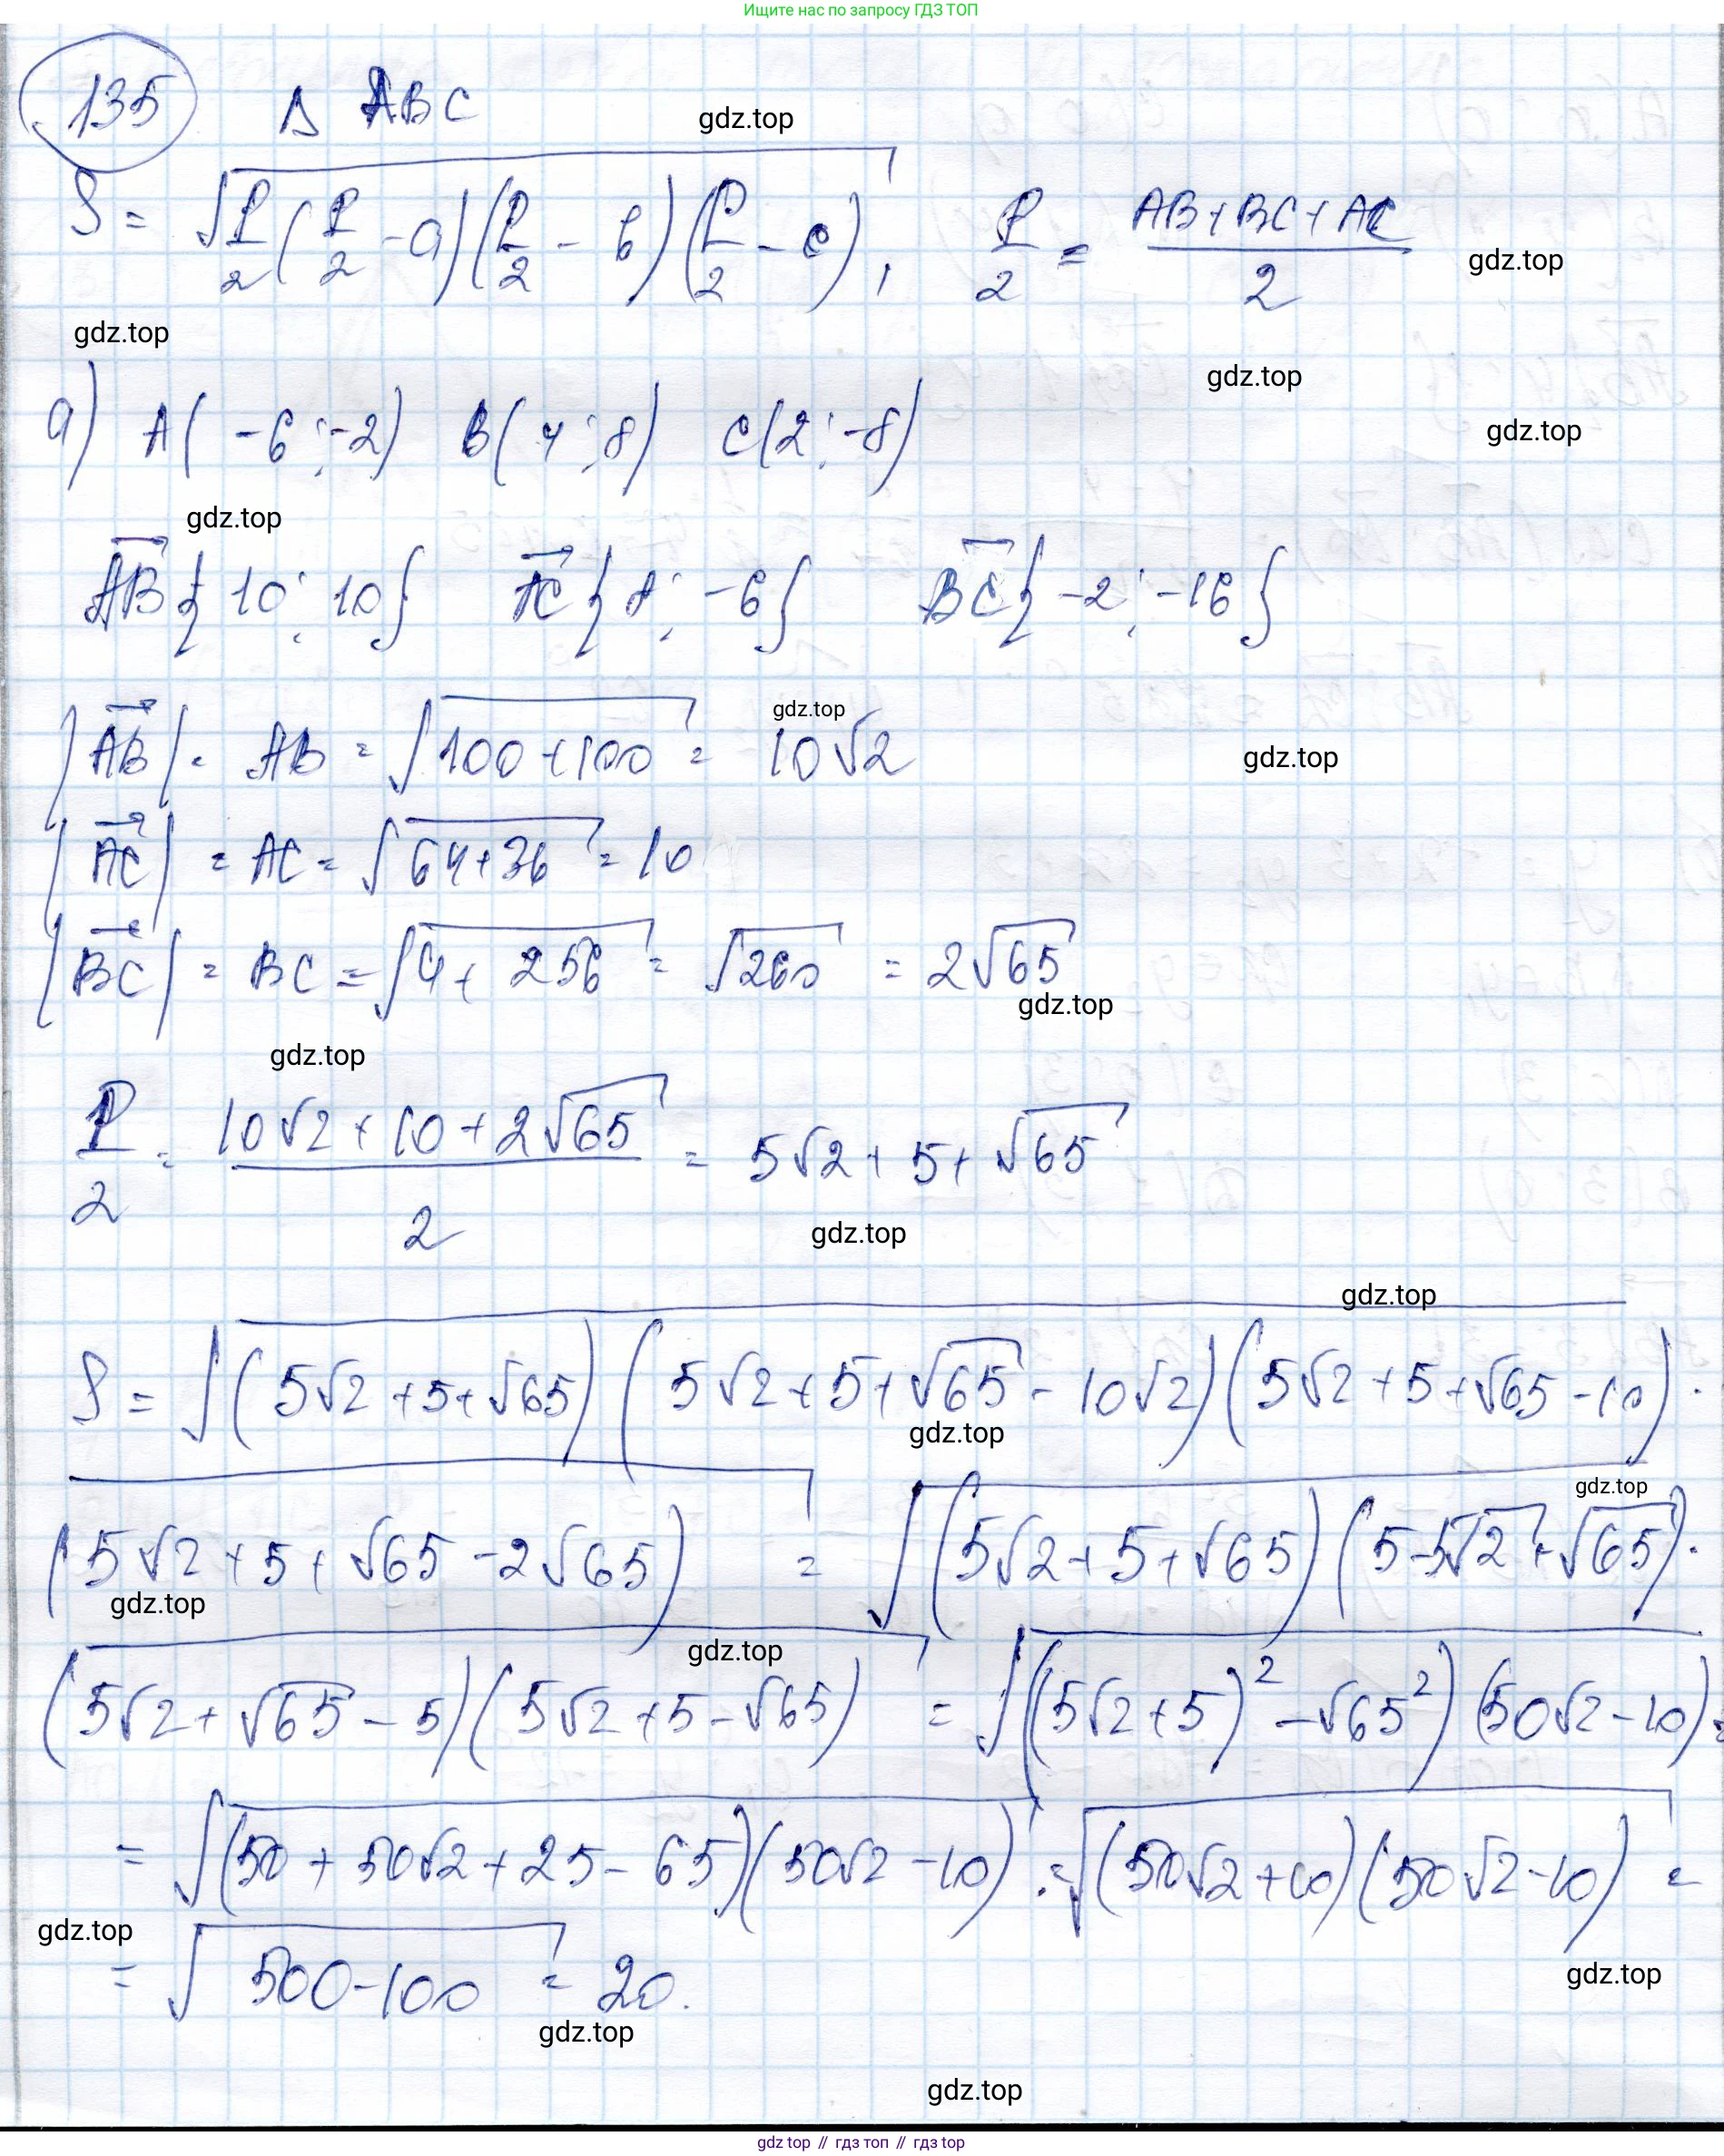 Ищите нас по запросу ГДЗ ТОП
135 Δ ABC
gdz.top
S = √(P/2 (P/2 - a)(P/2 - b)(P/2 - c)), P/2 = (AB+BC+AC)/2
gdz.top
gdz.top
gdz.top
а) A(-6;-2) B(4;8) C(2;-8)
gdz.top
gdz.top
AB{10; 10} AC{8; -6} BC{-2; -16}
gdz.top
|AB| = AB = √(100+100) = 10√2
gdz.top
|AC| = AC = √(64+36) = 10
|BC| = BC = √(4+256) = √260 = 2√65
gdz.top
gdz.top
P/2 = (10√2+10+2√65)/2 = 5√2+5+√65
gdz.top
gdz.top
S = √((5√2+5+√65)(5√2+5+√65-10√2)(5√2+5+√65-10)·
gdz.top
gdz.top
(5√2+5+√65-2√65) = √((5√2+5+√65)(5-5√2+√65)·
gdz.top
gdz.top
(5√2+√65-5)(5√2+5-√65) = √((5√2+5)²-√65²)(50√2-10) =
= √((50+50√2+25-65)(50√2-10)) = √((50√2+10)(50√2-10)) =
gdz.top
= √(500-100) = 20.
gdz.top
gdz.top
gdz.top
gdz top // гдз топ // gdz top